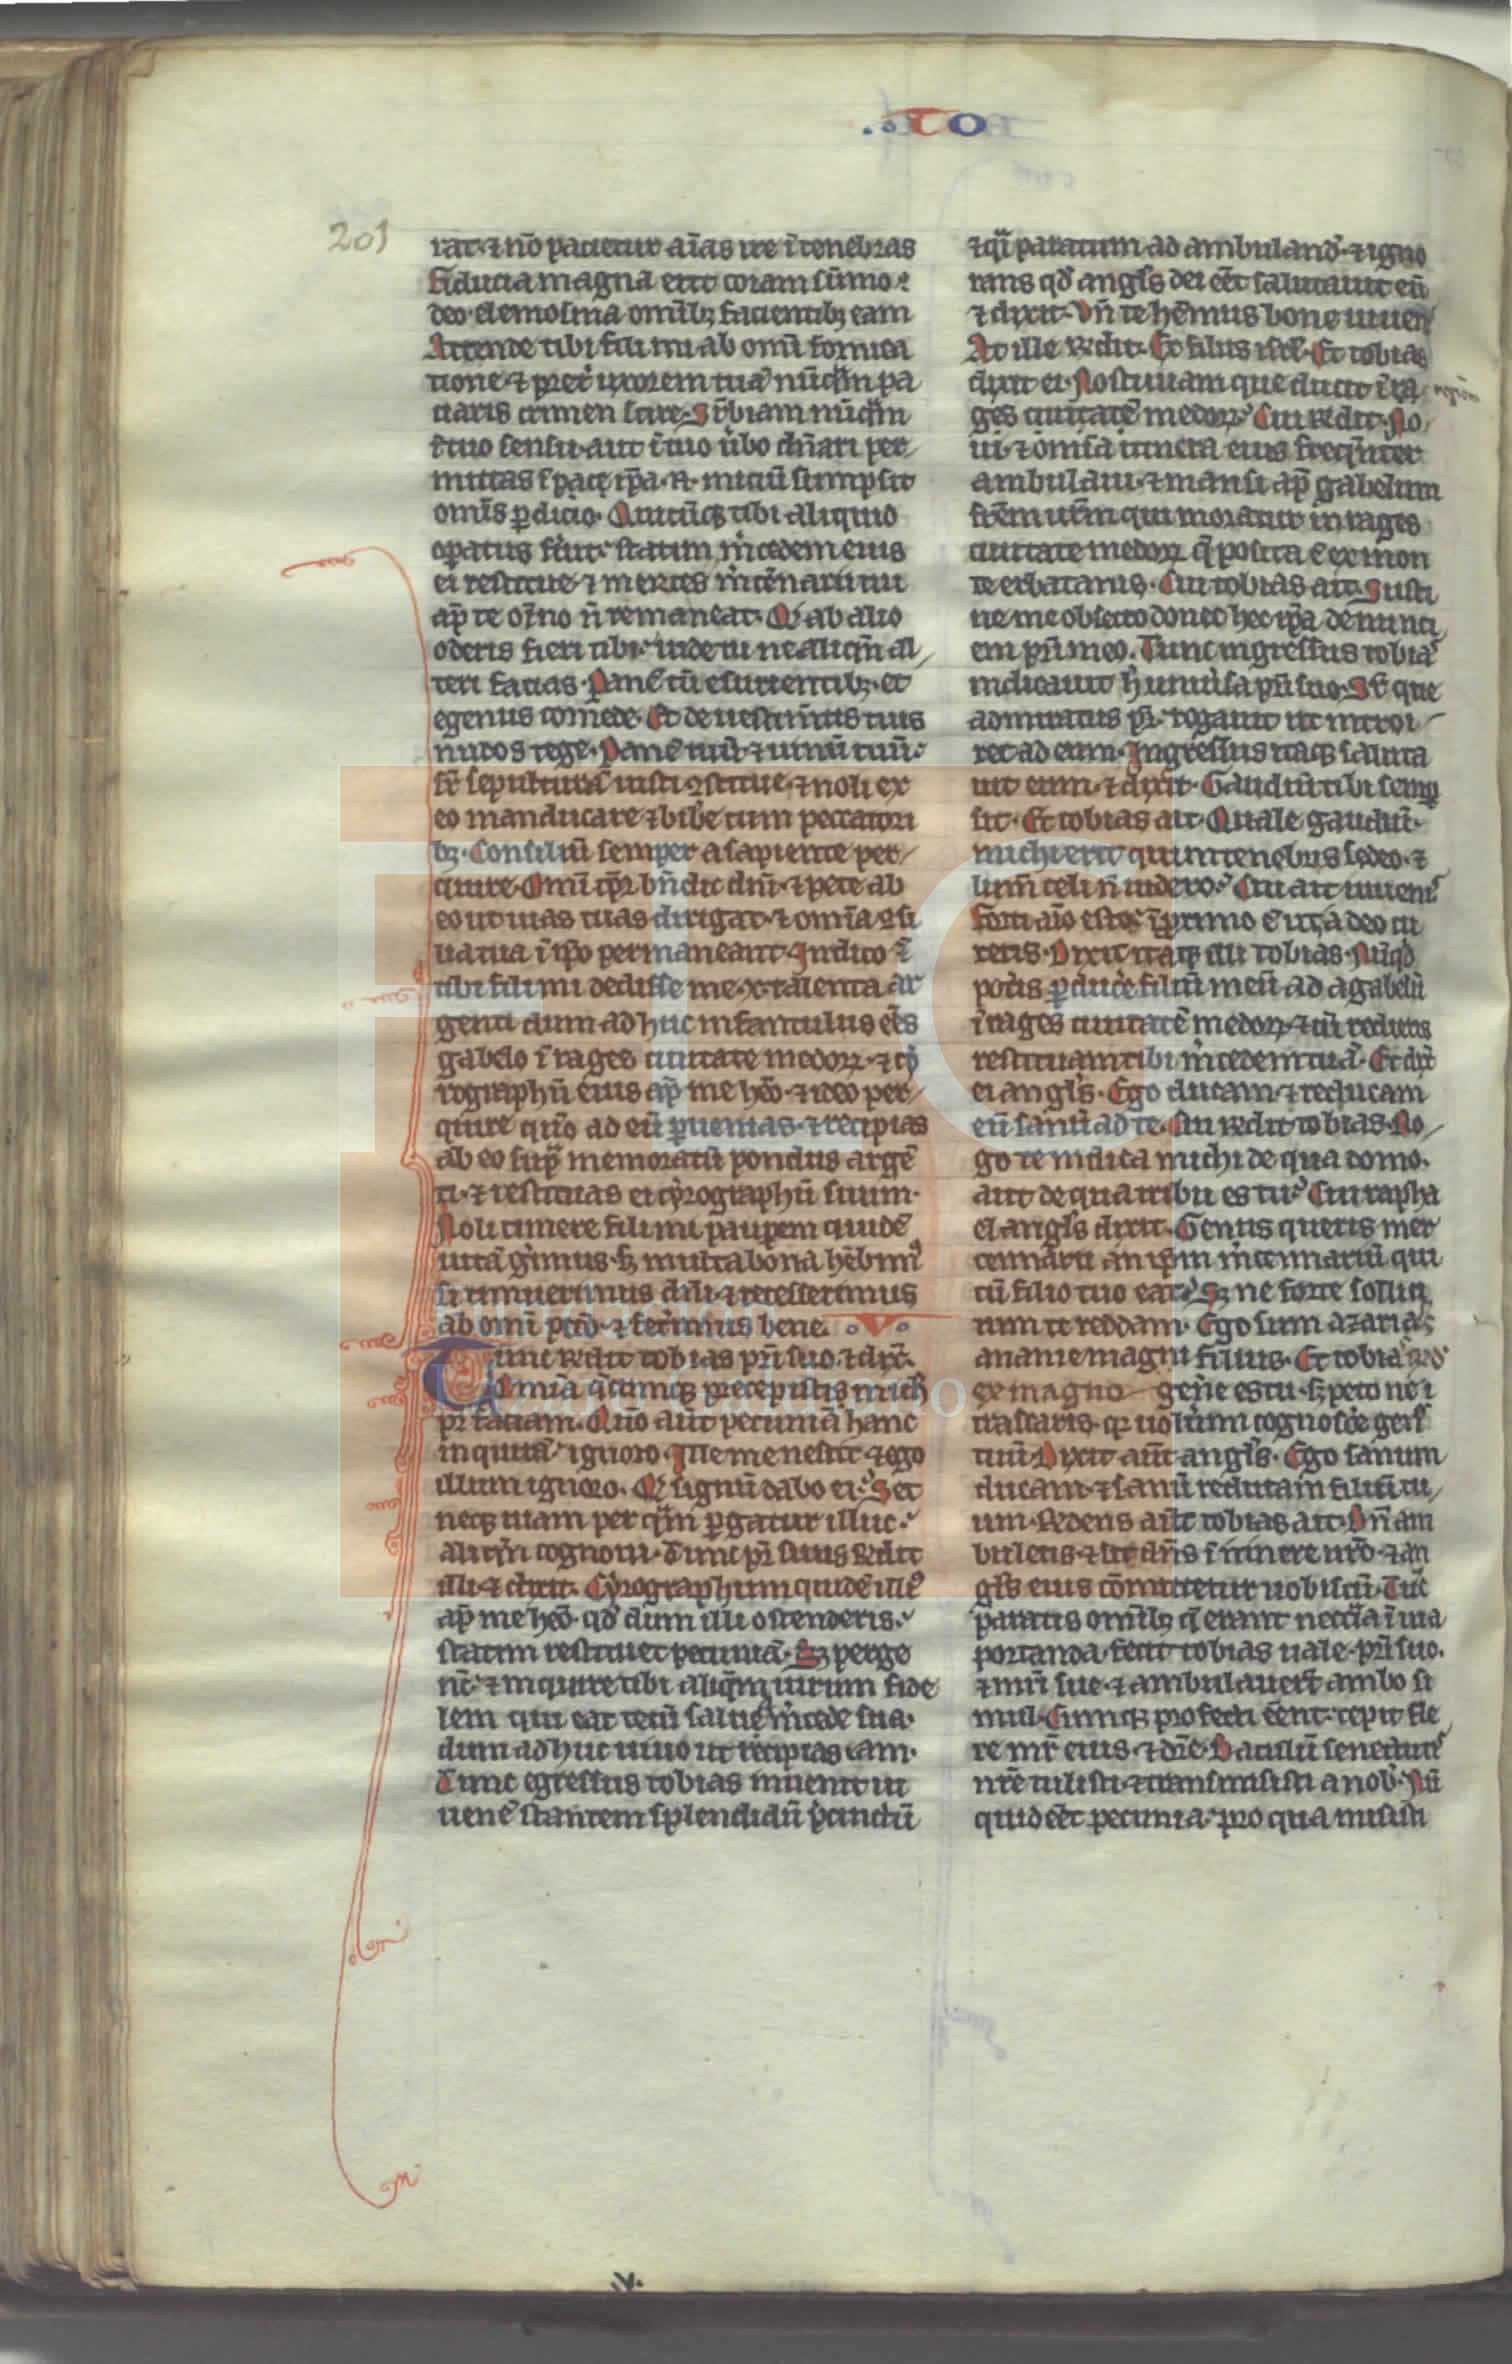 .To.
201
rat · ⁊ nō patietur aīas ire ī tenebras
Fiducia magna erit coram sūmo
deo · elemosina omīibꝫ facientibꝫ eam
Attende tibi fili mi ab omī fornica
tione · ⁊ pret̄ uxorem tuā nūq̄m pa
ciaris crimen scire · Suꝑbiam nūq̄m
ī tuo sensu · aut ī tuo ūbo dn̄ari per
mittas · ī
omīs ꝑditio · Quicūqꝫ tibi aliquid
oꝑatus fūit · statim m̄cedem eius
ei restitue · ⁊ merces m̄cēnarii tui
ap̄ te oīno n̄ remaneat · Qd̄ ab alio
oderis fieri tibi · uide tu ne aliqn̄ al
teri facias · Panē tuū esurientibꝫ · et
egenus comede · Et de uestim̄tis tuis
nudos tege · Panē tuū · ⁊ uinū tuū
sr̄ sepulturā iusti ꝯstitue · ⁊ noli ex
eo manducare ⁊ bibe cum peccatori
bꝫ · Consiliū semper a sapiente per
quire · Omī tp̄r bn̄dic dn̄i · ⁊ pete ab
eo ut uias tuas dirigat · ⁊ omīa ꝯsi
lia tua ī ip̄o permaneant · Indico ⁊
tibi fili mi dedisse me · x · talenta ar
genti dum adhuc infantulus eēs
gabelo ī rages ciuitate medoꝝ · ⁊ cy
rographū eius ap̄ me heō · ⁊ ideo per
quire quō ad eū ꝑuenias · ⁊ recipias
ab eo sup̄ memoratū pondus argē
ti · ⁊ restituas ei cyrographū suum ·
Noli timere fili mi pauꝑem quidē
uitā gerimus · sꝫ multa bona hēbim⁹
si timuerimus dm̄ · ⁊ recesserimus
ab omī pctō · ⁊ fecerimus bene. .V.
Tunc r̄dit tobias pr̄i suo · ⁊ dix̄ ·
Omīa q̄cumqꝫ precepistis mich
pr̄ faciam · Quō aūt pecuniā hanc
inquirā ignoro · Ille me nescit · ⁊ ego
illum ignoro · Qd̄ signū dabo ei · Set
neqꝫ uiam per q̄m ꝑgatur illuc
aliqn̄ cognoui · Tunc pr̄ suus r̄dit
illi · ⁊ dixit · Cyrographum quidē illi⁹
ap̄ me heō · qd̄ dum illi ostenderis
statim restituet pecuniā · Sꝫ perge
nc̄ · ⁊ inquire tibi aliq̄m uirum fide
lem qui eat tecū saluā m̄cede sua ·
dum adhuc uiuo ut recipias eam ·
Tunc egressus tobias inuenit iu
uenē stantem splendidū p̄cinctū
⁊ q̄i paratum ad ambuland̄ · ⁊ igno
rans qd̄ angl̄s dei eēt salutauit eū
⁊ dixit · Vn̄ te hēmus bone iuuen
At ille r̄dit · Ex filiis isrl̄ · Et tobias
dixit ei · Nosti uiam que ducit ī ra
ges ciuitatē medoꝝ · Cui r̄dit · No
ui · ⁊ omīa itinera eius freq̄nter
ambulaui · ⁊ mansi ap̄ gabelum
frēm ur̄m qui moratur in rages
ciuitate medoꝝ q̄ posita ē ex mon
te ecbatanis · Cui tobias ait · Susti
ne me obsecro donec hec ip̄a denunci
em pr̄i meo · Tunc ingressus tobia
indicauit h uniūsa pr̄i suo · Sr̄ que
admiratus pr̄ · rogauit ut introi
ret ad eum · Ingressus itaqꝫ saluta
uit eum · ⁊ dixit · Gaudiū tibi semꝑ
sit · Et tobias ait · Quale gaudiū
michi erit qui in tenebris sedeo · ⁊
lum̄ celi n̄ uideo · Cui ait iuuenis
Forti aīo esto · ī primo ē ut a deo cu
reris · Dixit itaqꝫ illi tobias · Nūqd̄
pot̄is ꝑducē filiū meū ad a gabelū
ī rages ciuitatē medoꝝ · ⁊ cū rediēis
restituam tibi m̄cedem tuā · Et dix̄
ei angl̄s · Ego ducam · ⁊ reducam
eū sanū ad te · Cui r̄dit tobias · Ro
go te indica michi de qua domo ·
aut de qua tribu es tu · Cui rapha
el angl̄s dixit · Genus queris mer
cennarii · an ip̄m m̄cennariū qui
cū filio tuo eat · Sꝫ ne forte sollici
tum te reddam · Ego sum azarias
ananie magni filius · Et tobia
ex magno gen̄e es tu · sꝫ peto ne i
rascaris · qr̄ uoluim cognosc̄e gen⁹
tuū · Dixit aūt angl̄s · Ego sanum
ducam · ⁊ sanū reducam filiū tu
um · R̄dens aūt tobias ait · Bn̄ am
buletis · ⁊ sit dn̄s ī itinere uro · ⁊ an
gl̄s eius cōmittetur uobiscū · Tūc
paratis omībꝫ q̄ erant nec̄cia ī uia
portanda · fecit tobias uale · pr̄i suo ·
⁊ mr̄i sue · ⁊ ambulauerūt ambo si
mul · Cumqꝫ profecti eēnt · cepit fle
re mr̄ eius · ⁊ dicē · Baculū senectuti⁹
nr̄e tulisti · ⁊ transmisisti a nob · Nū
quid eēt pecunia · pro qua misisti